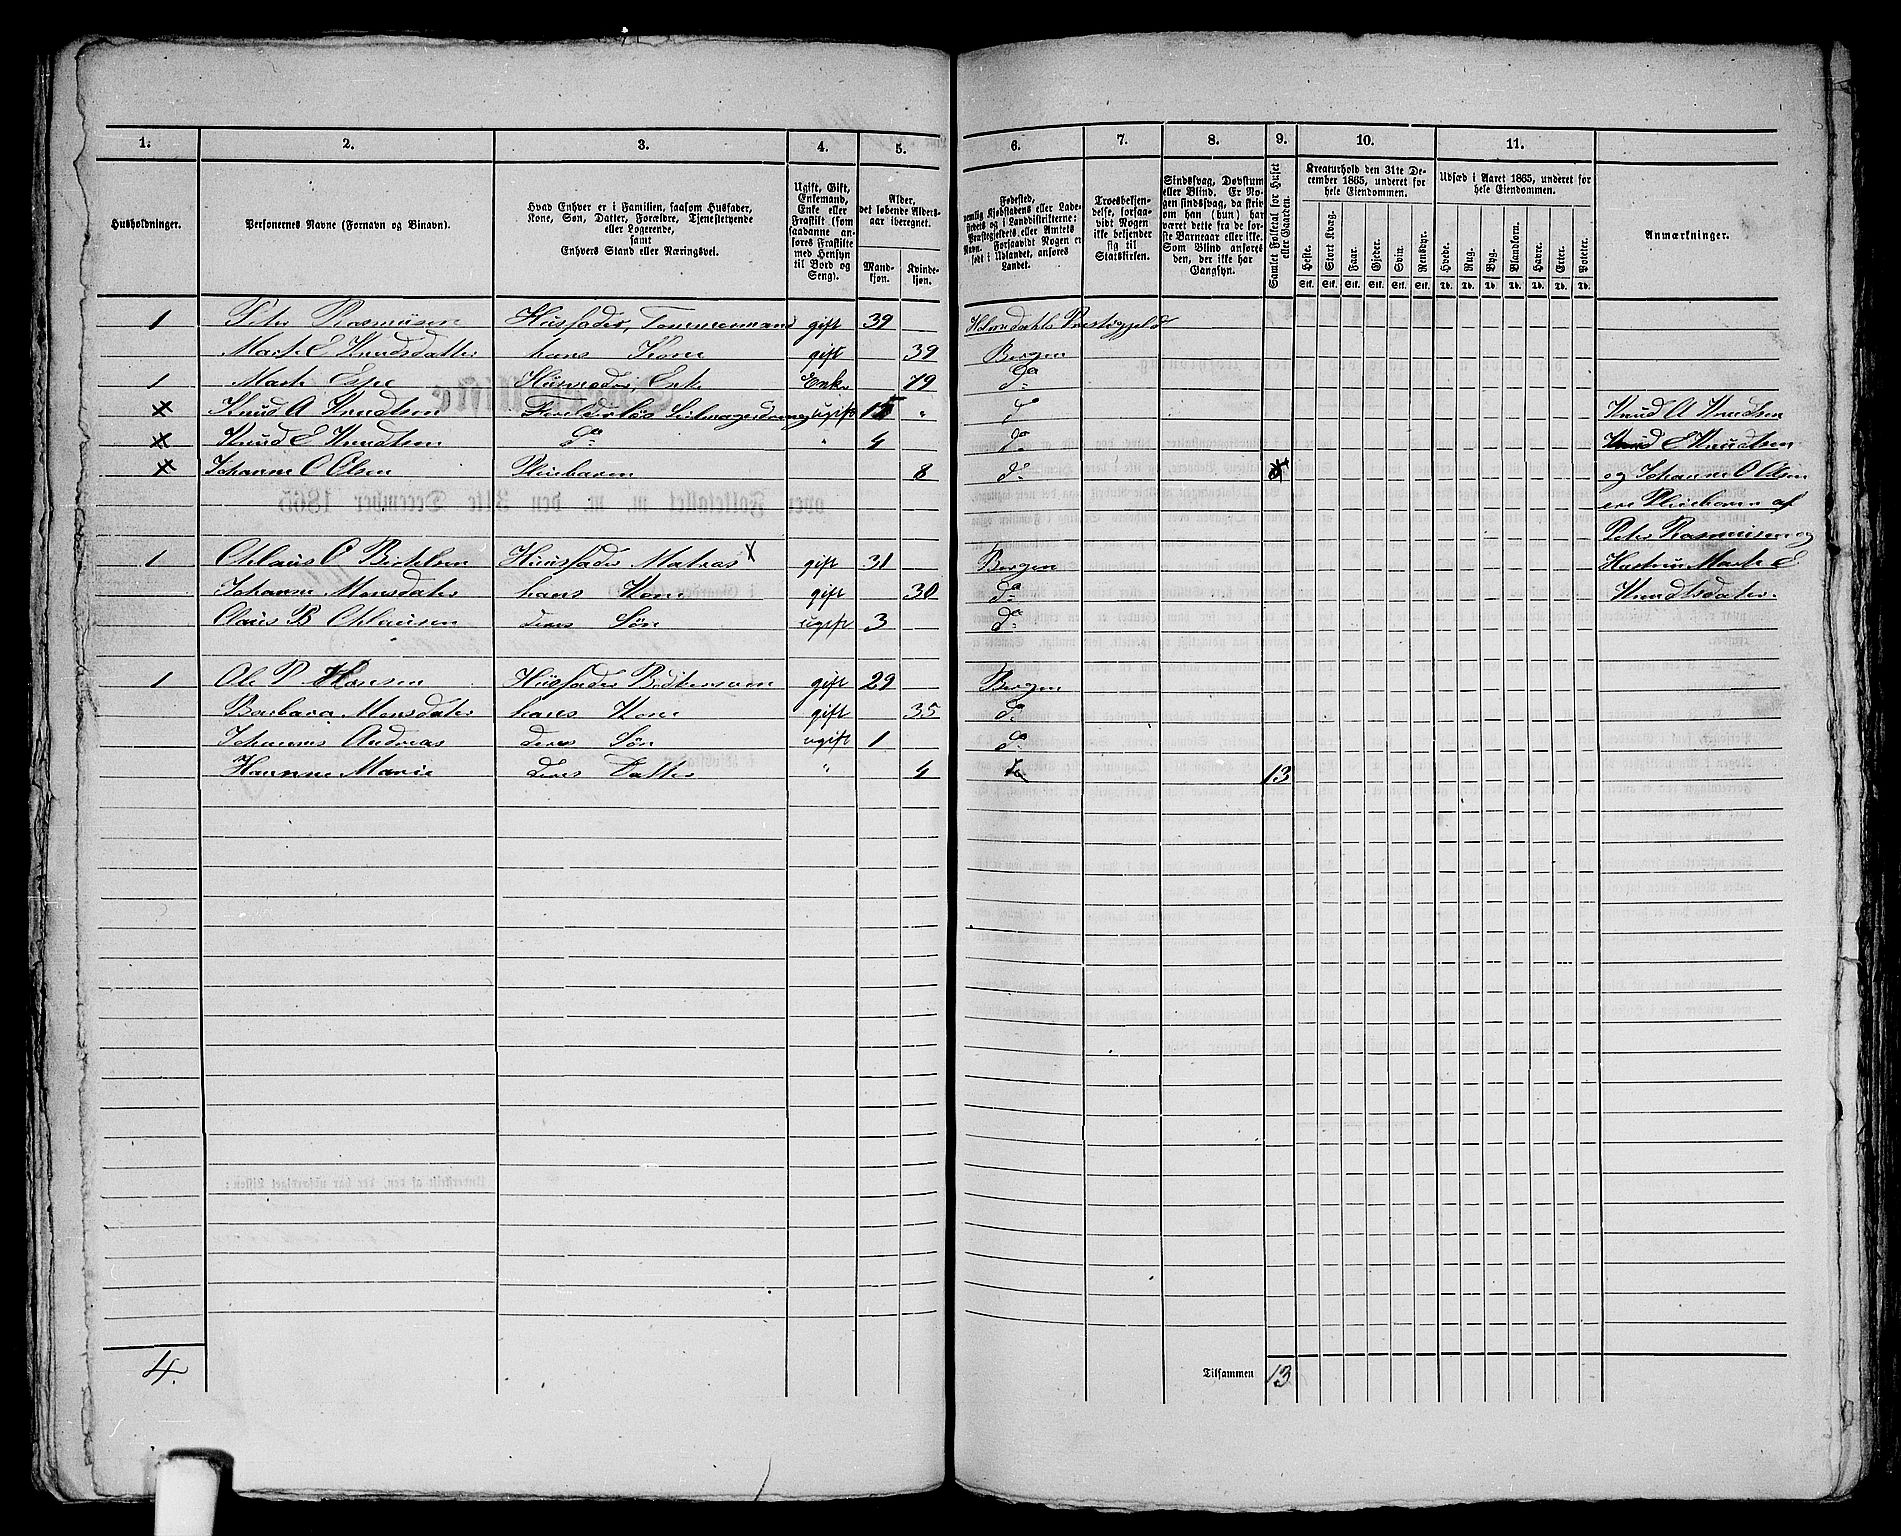 1. 2. 3. 4. 5. 6. 7. 8. 9. 10. 11.
Husholdninger.
Personernes Navne (Fornavn og Binavn).
Hvad Enhver er i Familien, saasom Husfader,
Kone, Søn, Datter, Forældre, Tjenstetyende
eller Logerende,
samt
Enhvers Stand eller Næringsvei.
Ugift, Gift,
Enkemand,
Enke eller
Fraskilt (som
saadanne an-
føres Fraskilte
med Hensyn
til Bord og
Seng).
Alder,
det løbende Alders-
aar iberegnet.
Mand-
kjøn.
Kvinde-
kjøn.
Fødested,
nemlig Kjøbstadens eller Lade-
stedets og i Landdistrikterne:
Præstegjeldets eller Amtets
Navn. Forsaavidt Nogen er
født i Udlandet, anføres
Landet.
Troesbekjen-
delse, forsaa-
vidt Nogen
ikke bekjender
sig til
Statskirken.
Sindssvag, Døvstum
eller Blind. Er No-
gen sindssvag, da skriv
om han (hun) har
været dette fra de før-
ste Barneaar eller ikke.
Som Blind anføres
den, der ikke har
Gangsyn.
Samlet Folketal for Huset
eller Gaarden.
Kreaturhold den 31te De-
cember 1865, underet for
hele Eiendommen.
Heste. Stort Kvæg. Faar. Gjeder. Svin. Rensdyr.
Stk. Stk. Stk. Stk. Stk. Stk.
Udsæd i Aaret 1865, underet for
hele Eiendommen.
Hvede. Rug. Byg. Blandkorn. Havre. Erter. Poteter.
Td. Td. Td. Td. Td. Td. Td.
Anmærkninger.
1 Peter Rasmüsen Hüsfader, Tømmermand gift 39 Holmedahls Prestegjeld
Marte E Knudsdatter hans Kone gift 39 Bergen
1 Marte Espe Hüsmoder, Enke Enke 79 do
x Knud A Knudsen Seilmagerdreng ugift 15 " do Knud A Knudsen
x Knud E Knudsen do " 4 do Knud E Knudsen
x Johanne O Olsen Pleiebaren 8 do og Johanne O Olsen
ere Pleiebørn af
Peter Rasmüsen og
1 Ohlaus O Huusfader Matros x gift 31 Bergen Hustru Marte E
Johanne Monsdater hans Kone gift 30 do Knudtsdater.
Claus B Ohlausen deres Søn ugift 3 do
1 Ole P Hansen Hüsfader gift 29 Bergen
Barbara Monsdater hans Kone gift 35 do
Johannes Andreas deres Søn ugift 1 do
Hanne Marie deres Datter " 4 do 13
4. Tilsammen 13